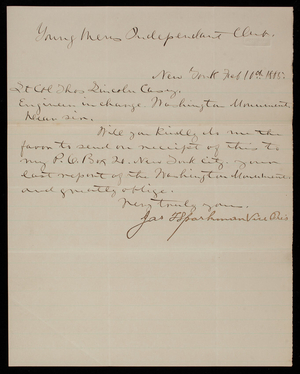 Young Mens Independent Club.
New York Feb 11th 1885
Lt Col Thos Lincoln Casey,
Engineer in charge Washington Monument
Dear sir,
Will you kindly do me the
favor to send on receipt of this to
my P.O. Box New York City. your
last report of the Washington Monument
and greatly oblige.
Very truly yours.
Jas Sparkman Vice Pres